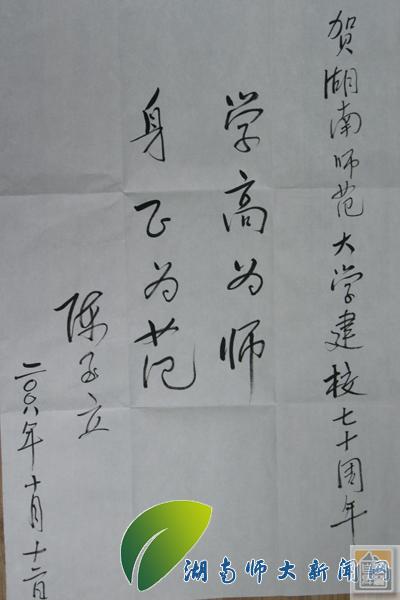 贺湖南师范大学建校七十周年
学高为师
身正为范
陈玉立
二〇〇八年十月十二日
湖南师大新闻网